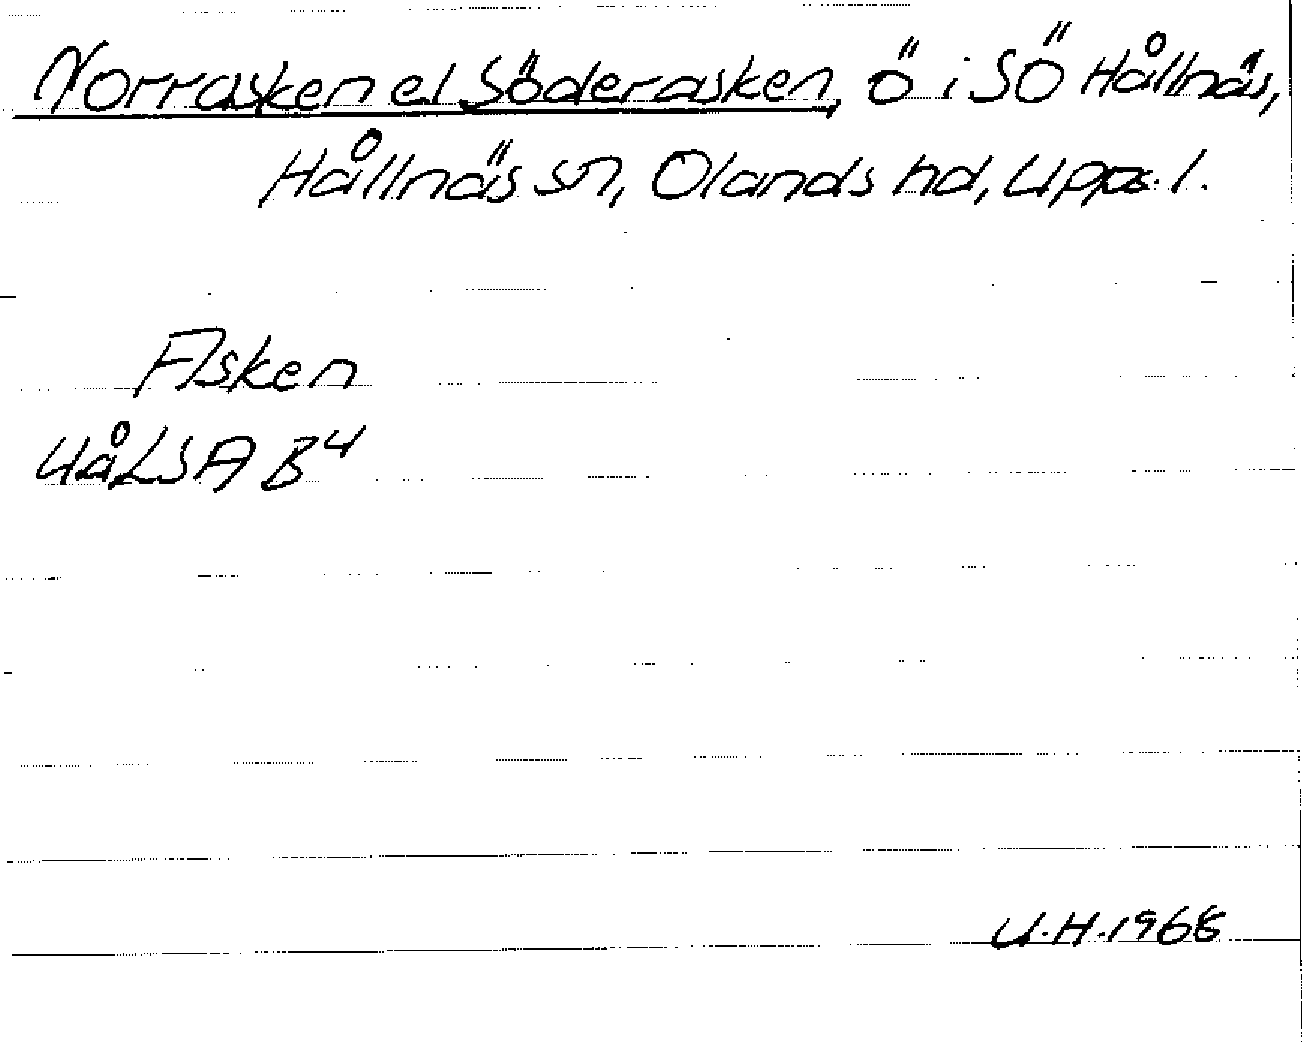 Norrasken el Söderasken, ö i SÖ Hållnäs,
Hållnäs sn, Olands hd, Uppl.
Asken
B4
U.H. 1968